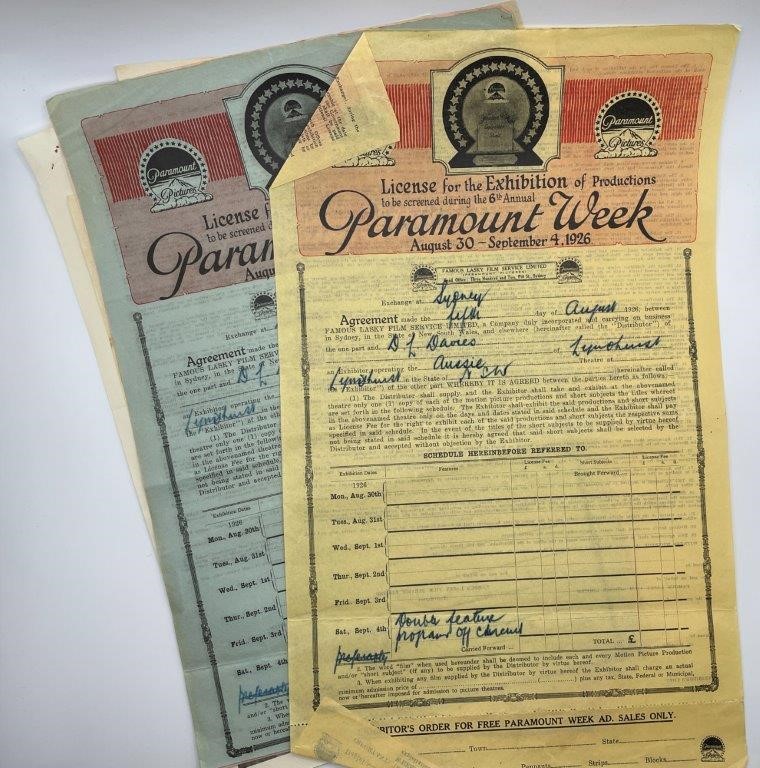 Paramount Pictures
Paramount Pictures
License for the Exhibition of Productions
to be screened during the 6th Annual
Paramount Week
August 30 – September 4, 1926
FAMOUS LASKY FILM SERVICE LIMITED
Exchange at Sydney
Agreement made the fifth day of August 1926, between
FAMOUS LASKY FILM SERVICE LIMITED, a Company duly incorporated and carrying on business
in Sydney, in the State of New South Wales, and elsewhere (hereinafter called the "Distributor") of
the one part and D L Davies of Lyndhurst
an Exhibitor operating the Aussie Theatre at
Lyndhurst in the State of NSW
(the "Exhibitor") of the other part WHEREBY IT IS AGREED between the parties hereto as follows:
(1) The Distributor shall supply, and the Exhibitor shall take and exhibit at the abovenamed
theatre only one (1) copy of each of the motion picture productions and short subjects the titles whereof
are set forth in the following schedule. The Exhibitor shall exhibit the said productions and short subjects
in the abovenamed theatre only on the days and dates stated in said schedule and the Exhibitor shall pay
as License Fee for the right to exhibit each of the said productions and short subjects the respective sums
specified in said schedule. In the event of the titles of the short subjects to be supplied by virtue hereof
not being stated in said schedule it is hereby agreed that said short subjects shall be selected by the
Distributor and accepted without objection by the Exhibitor.
SCHEDULE HEREINBEFORE REFERRED TO.
Exhibition Dates Features License Fee £ s. d. Short Subjects License Fee £ s. d.
1926 Brought Forward
Mon., Aug. 30th
Tues., Aug. 31st
Wed., Sept. 1st
Thur., Sept. 2nd
Frid., Sept. 3rd
Sat., Sept. 4th Double feature
program off circuit
preferably Carried Forward TOTAL £
2. The word "film" when used hereunder shall be deemed to include each and every Motion Picture Production
and/or "short subject" (if any) to be supplied by the Distributor by virtue hereof.
3. When exhibiting any film supplied by the Distributor by virtue hereof the Exhibitor shall charge an actual
minimum admission price of plus any tax, State, Federal or Municipal,
now or hereafter imposed for admission to picture theatres.
BITOR'S ORDER FOR FREE PARAMOUNT WEEK AD. SALES ONLY.
Town State
Pennants Strips Blocks
Paramount Pictures
License f
to be screened d
Param
Augu
Exchange at
Agreement made the
FAMOUS LASKY FILM SERV
in Sydney, in the State of Ne
the one part and D L
Exhibitor operating the
Lyndhurst
(the "Exhibitor") of the oth
(1) The Distributor
theatre only one (1) copy of
are set forth in the following
in the abovenamed theatre o
as License Fee for the right
specified in said schedule
not being stated in said s
Distributor and accepted
Exhibition Dates
1926
Mon., Aug. 30th
Tues., Aug. 31st
Wed., Sept. 1st
Thur., Sept. 2nd
Frid., Sept. 3rd
Sat., Sept. 4th
preferably
2. The
and/or "short
3. Whe
minimum adm
now or hereaf